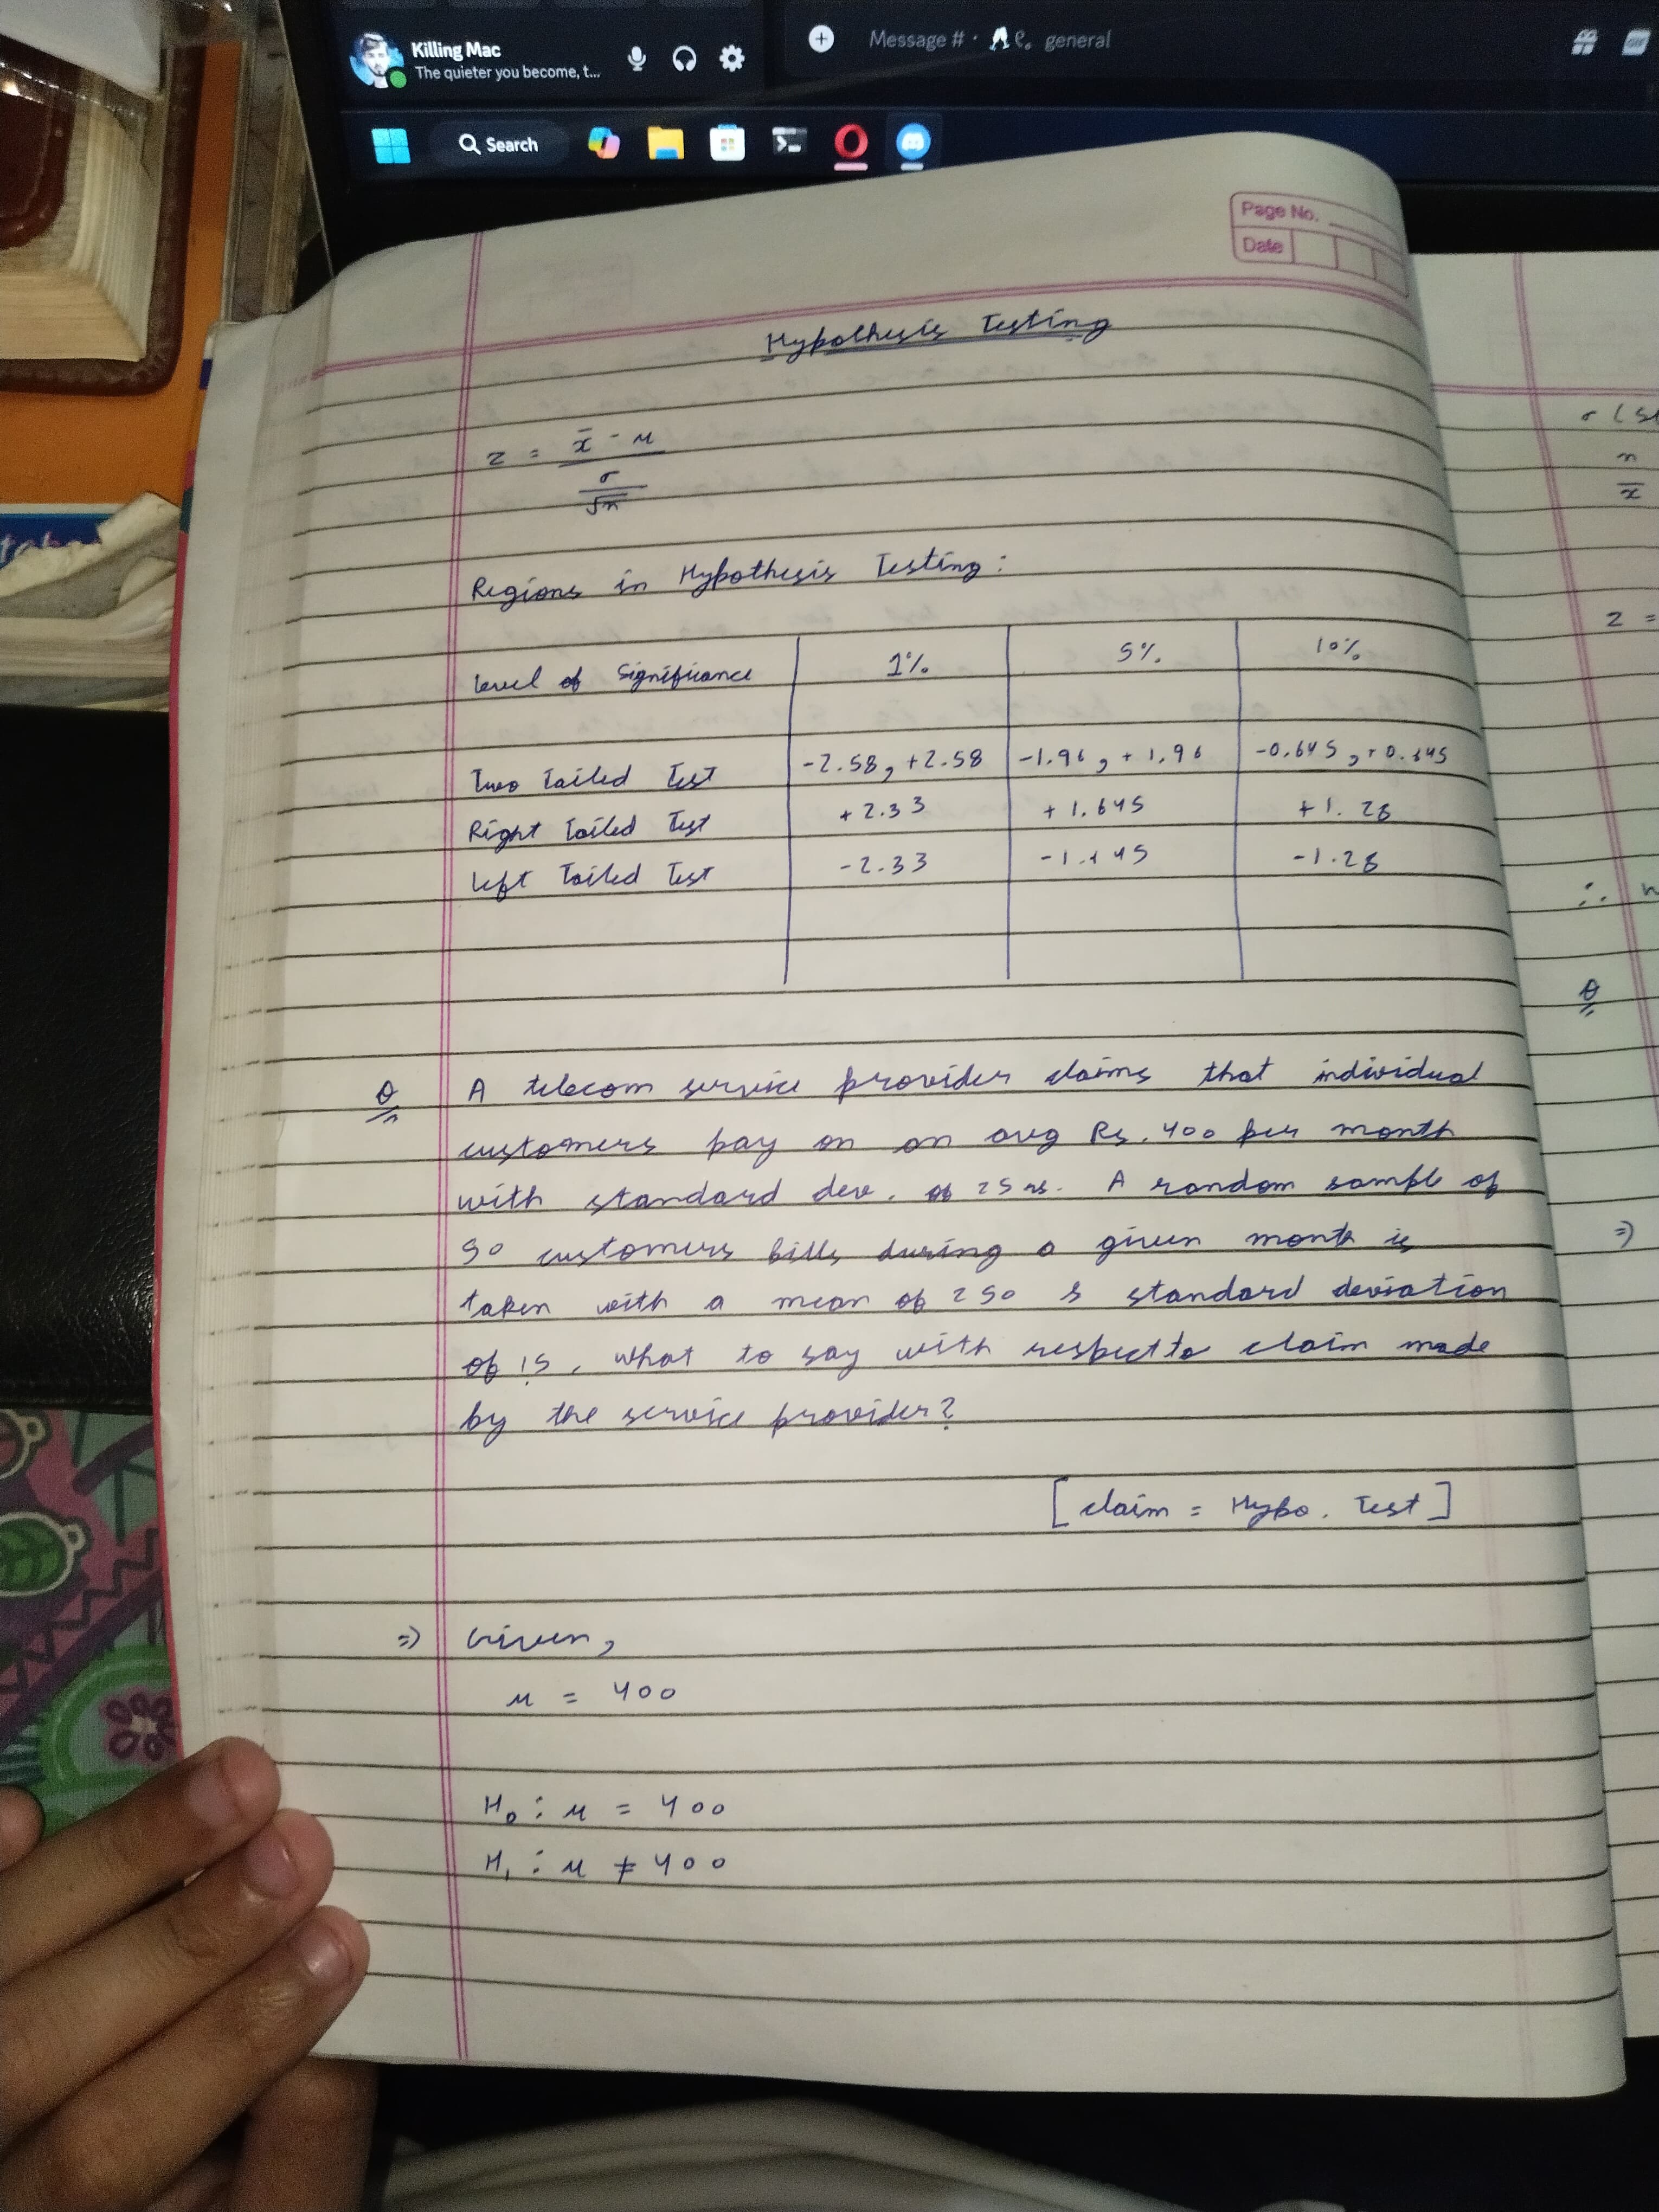 Killing Mac
The quieter you become, t...
Message # · general
Search
Page No.
Date
Hypothesis Testing
z = x̄ - μ
σ
√n
Regions in Hypothesis Testing :
Level of Significance 1% 5% 10%
Two Tailed Test -2.58, +2.58 -1.96, +1.96 -0.645, +0.645
Right Tailed Test +2.33 +1.645 +1.28
Left Tailed Test -2.33 -1.645 -1.28
Q A telecom service provider claims that individual
customers pay on an avg Rs. 400 per month
with standard dev. of 25 rs. A random sample of
50 customers bills during a given month is
taken with a mean of 250 & standard deviation
of 15. What to say with respect to claim made
by the service provider?
[claim = Hypo. Test]
⇒ Given,
μ = 400
H₀ : μ = 400
H₁ : μ ≠ 400
n
x̄
z =
∴
Q
⇒